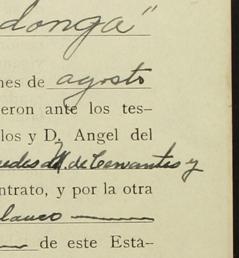 donga"
nes de agosto
eron ante los tes-
los y D. Angel del
M. de Cervantes y
ntrato, y por la otra
lauco
de este Esta-